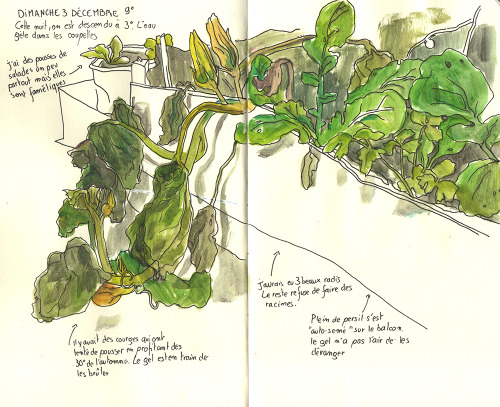 DIMANCHE 3 DÉCEMBRE 9°
Cette nuit, on est descendu à 3°. L'eau
gèle dans les coupelles
j'ai des pousses de
salades un peu
partout mais elles
sont faméliques
j'aurais eu 3 beaux radis
Le reste refuse de faire des
racines.
Plein de persil s'est
"auto-semé" sur le balcon.
le gel n'a pas l'air de les
déranger
Il y avait des courges qui ont
tenté de pousser en profitant des
30° de l'automne. Le gel est en train de
les brûler